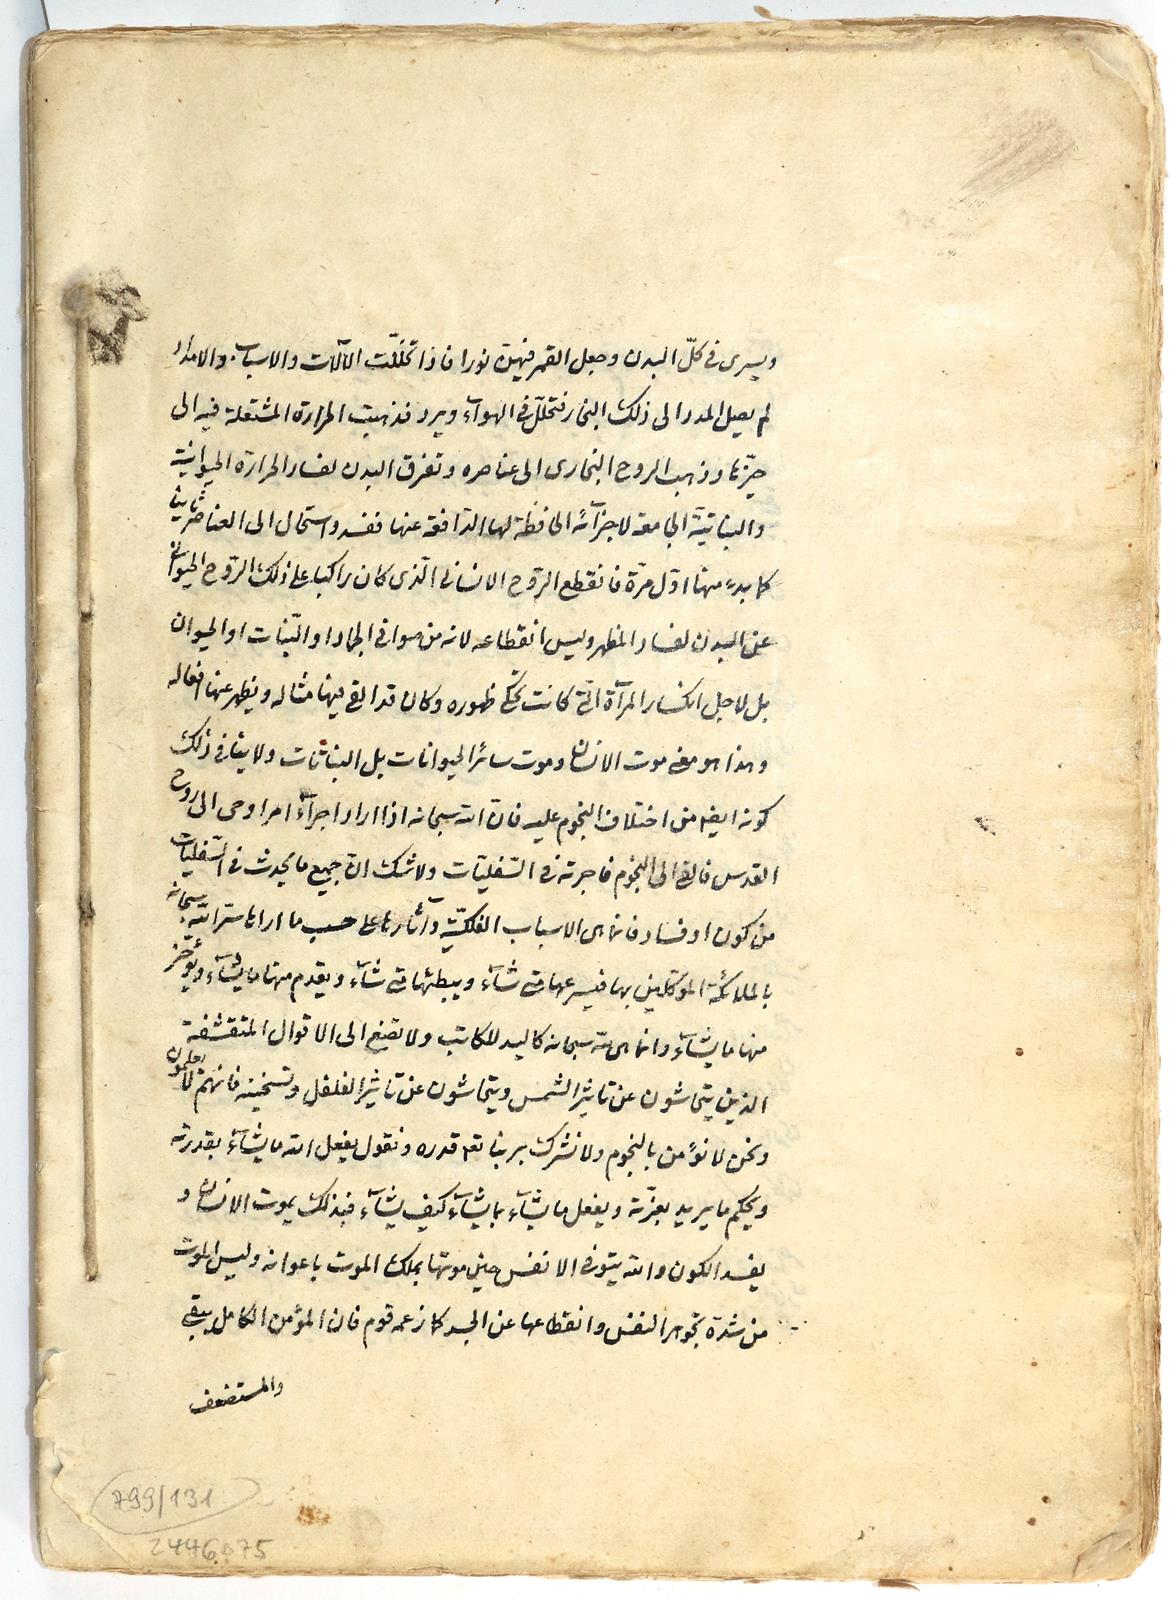 ويسرى فى كلّ البدن وجعل القمر فيهنّ نورا فاذا تخللّت الآلات والاسباب والامداد
لم يصل المدد الى ذلك البخار فتحلّل فى الهواء ويبرد فذهبت الحرارة المشتعلة فيه الى
حيّزها وذهب الروح البخارى الى عناصره وتفرق البدن لفساد الحرارة الحيوانيّة
والنباتيّة الجامعة لاجزآئه الحافظة لها الدّافعة عنها ففسد واستحال الى العناصر ثانيا
كما بدء منها اوّل مرّة فانقطع الرّوح الانسانى الّذى كان راكبا على ذلك الرّوح الحيوانى
عن البدن لفساد المظهر وليس انقطاعه لانه من صوافى الجماد او النّبات او الحيوان
بل لاجل انكسار المرآة الّتى كانت تحكى ظهوره وكان قد القى فيها مثاله ويظهر عنها افعاله
وهذا هو معنى موت الانسان وموت سائر الحيوانات بل النباتات ولا ينافى ذلك
كونه ايضا من اختلاف النجوم عليه فانّ الله سبحانه اذا اراد اجرآء امر اوحى الى روح
القدس فالقى الى النجوم فاجرته فى السّفليّات ولا شك انّ جميع ما يحدث فى السّفليّات
من كون او فساد فانما هى الاسباب الفلكيّة وآثارها على حسب ما اراها ستر الله سبحانه
بالملائكة الموكلين بها فيسرعها متى شآء ويبطئها متى شآء ويقدم منها ما يشآء ويؤخّر
منها ما يشآء وانما هى لله سبحانه كاليد للكاتب ولا تصغ الى الاقوال المتقشفة
الذين يتحاشون عن تاثير الشمس ويتحاشون عن تاثير الفلفل وتسخينه فانهم لا يعلمون
ونحن لا نؤمن بالنجوم ولا نشرك بربنا نعم قدره ونقول يفعل الله ما يشآء بقدرته
ويحكم ما يريد بعزّته ويفعل ما يشآء بما يشآء كيف يشآء فبذلك يموت الانسان و
يفسد الكون والله يتوفى الانفس حين موتها بملك الموت باعوانه وليس الموت
من شدة تجوهر النفس وانقطاعها عن الجسد كما زعمه قوم فان المؤمن الكامل يبقى
والمستضعف
799/131
2446075